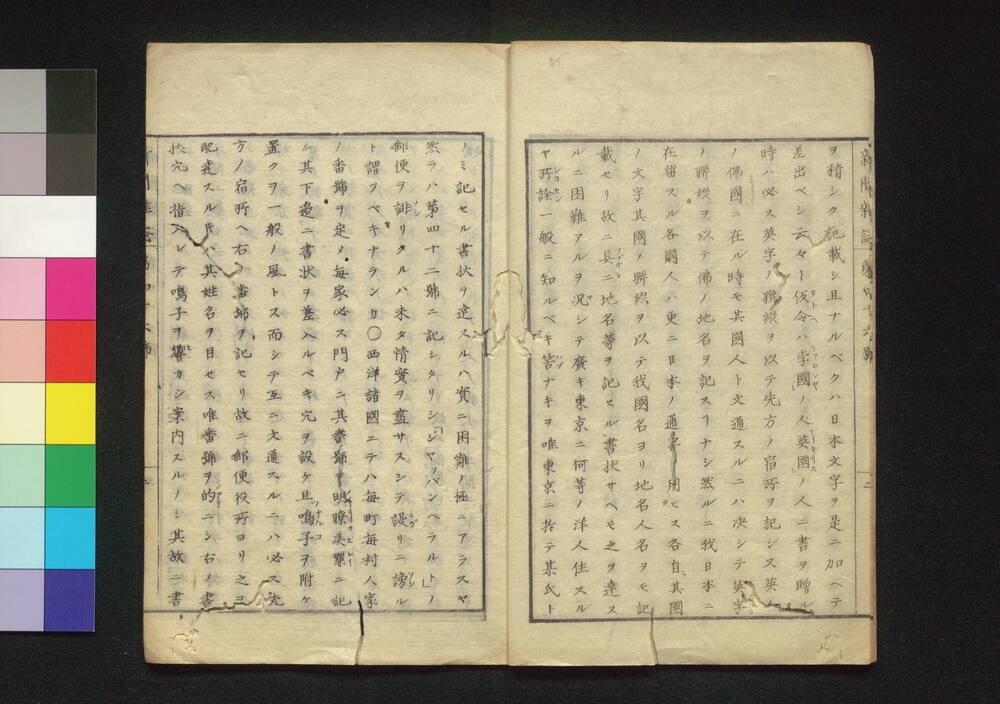 ヲ精シク記載シ且ナルベクハ日本文字ヲ是ニ加ヘテ
差出ベシ云々ト仮令ハ孛國ノ人英國ノ人ニ書ヲ贈ル
時ハ必ス英字ノ聯綴ヲ以テ先方ノ宿所ヲ記シス英人
ノ佛國ニ在ル時モ其國人ト文通スルニハ决シテ英字
ノ聯綴ヲ以テ佛ノ地名ヲ記スヿナシ然ルニ我日本ニ
在留スル各國人ハ更ニ日本ノ通字ヲ用ヒス各自其國
ノ文字其國ノ聯綴ヲ以テ我國名ヨリ地名人名ヲモ記
載セリ故ニ具ニ地名等ヲ記セル書状サヘモ之ヲ達ス
ルニ困難アルヲ况シテ廣キ東京ニ何等ノ洋人住スル
ヤ所詮一般ニ知ルベキ筈ナキヲ唯東京ニ於テ某氏ト
ノミ記セル書状ヲ送スルハ實ニ困難ノ極ニアラスヤ
然ラハ第四十二號ニ記シタリシ「ジヤパンヘラルト」ノ
郵便ヲ誹リタルハ未タ情實ヲ盡サスシテ謾リニ謗ル
ト謂フベキナランカ〇西洋諸國ニテハ毎町毎村人家
ノ番號ヲ定メ毎家必ス門戸ニ其番號ヲ明瞭美麗ニ記
シ其下邉ニ書状ヲ差入ルベキ穴ヲ設ケ且鳴子ヲ附ケ
置クヲ一般ノ風トス而シテ互ニ文通スルニハ必ス先
方ノ宿所ヘ右ノ番號ヲ記セリ故ニ郵便役所ヨリ之ヲ
配達スル氏ハ其姓名ヲ目セス唯番號ヲ的ニシ右ノ書
状穴ヘ指入レテ鳴子ヲ響カシ案内スルノミ其故ニ書